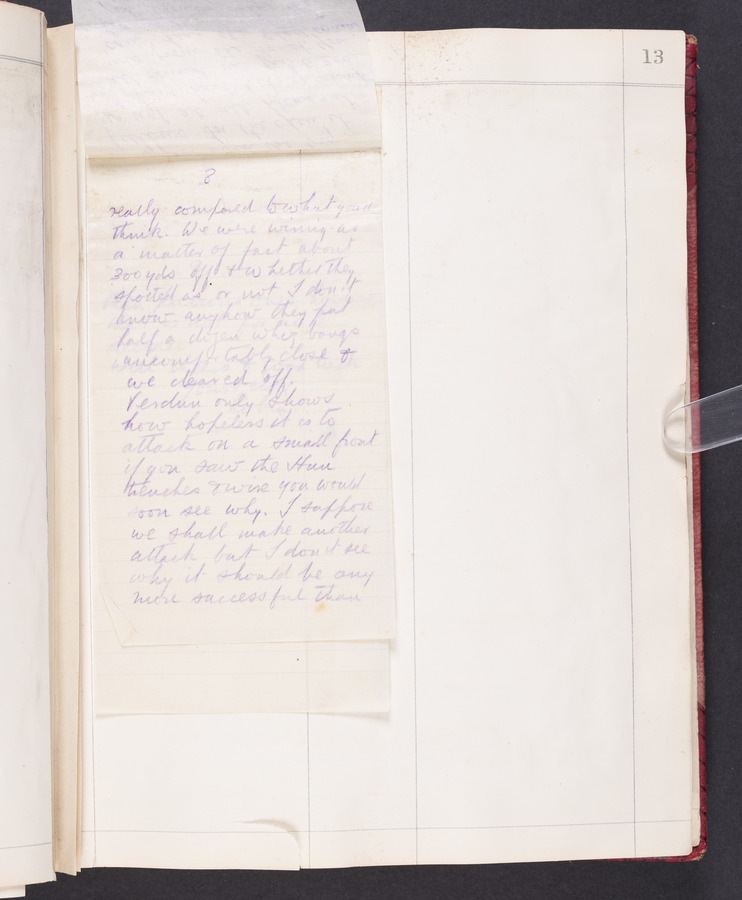 13
8
really compared to what you'd
think. We were wiring as
a matter of fact about
300 yds off & whether they
spotted us or not I don't
know anyhow they put
half a dozen whiz bangs
uncomfortably close &
we cleared off.
Verdun only shows
how hopeless it is to
attack on a small front
if you saw the Hun
trenches & wire you would
soon see why. I suppose
we shall make another
attack but I don't see
why it should be any
more successful than